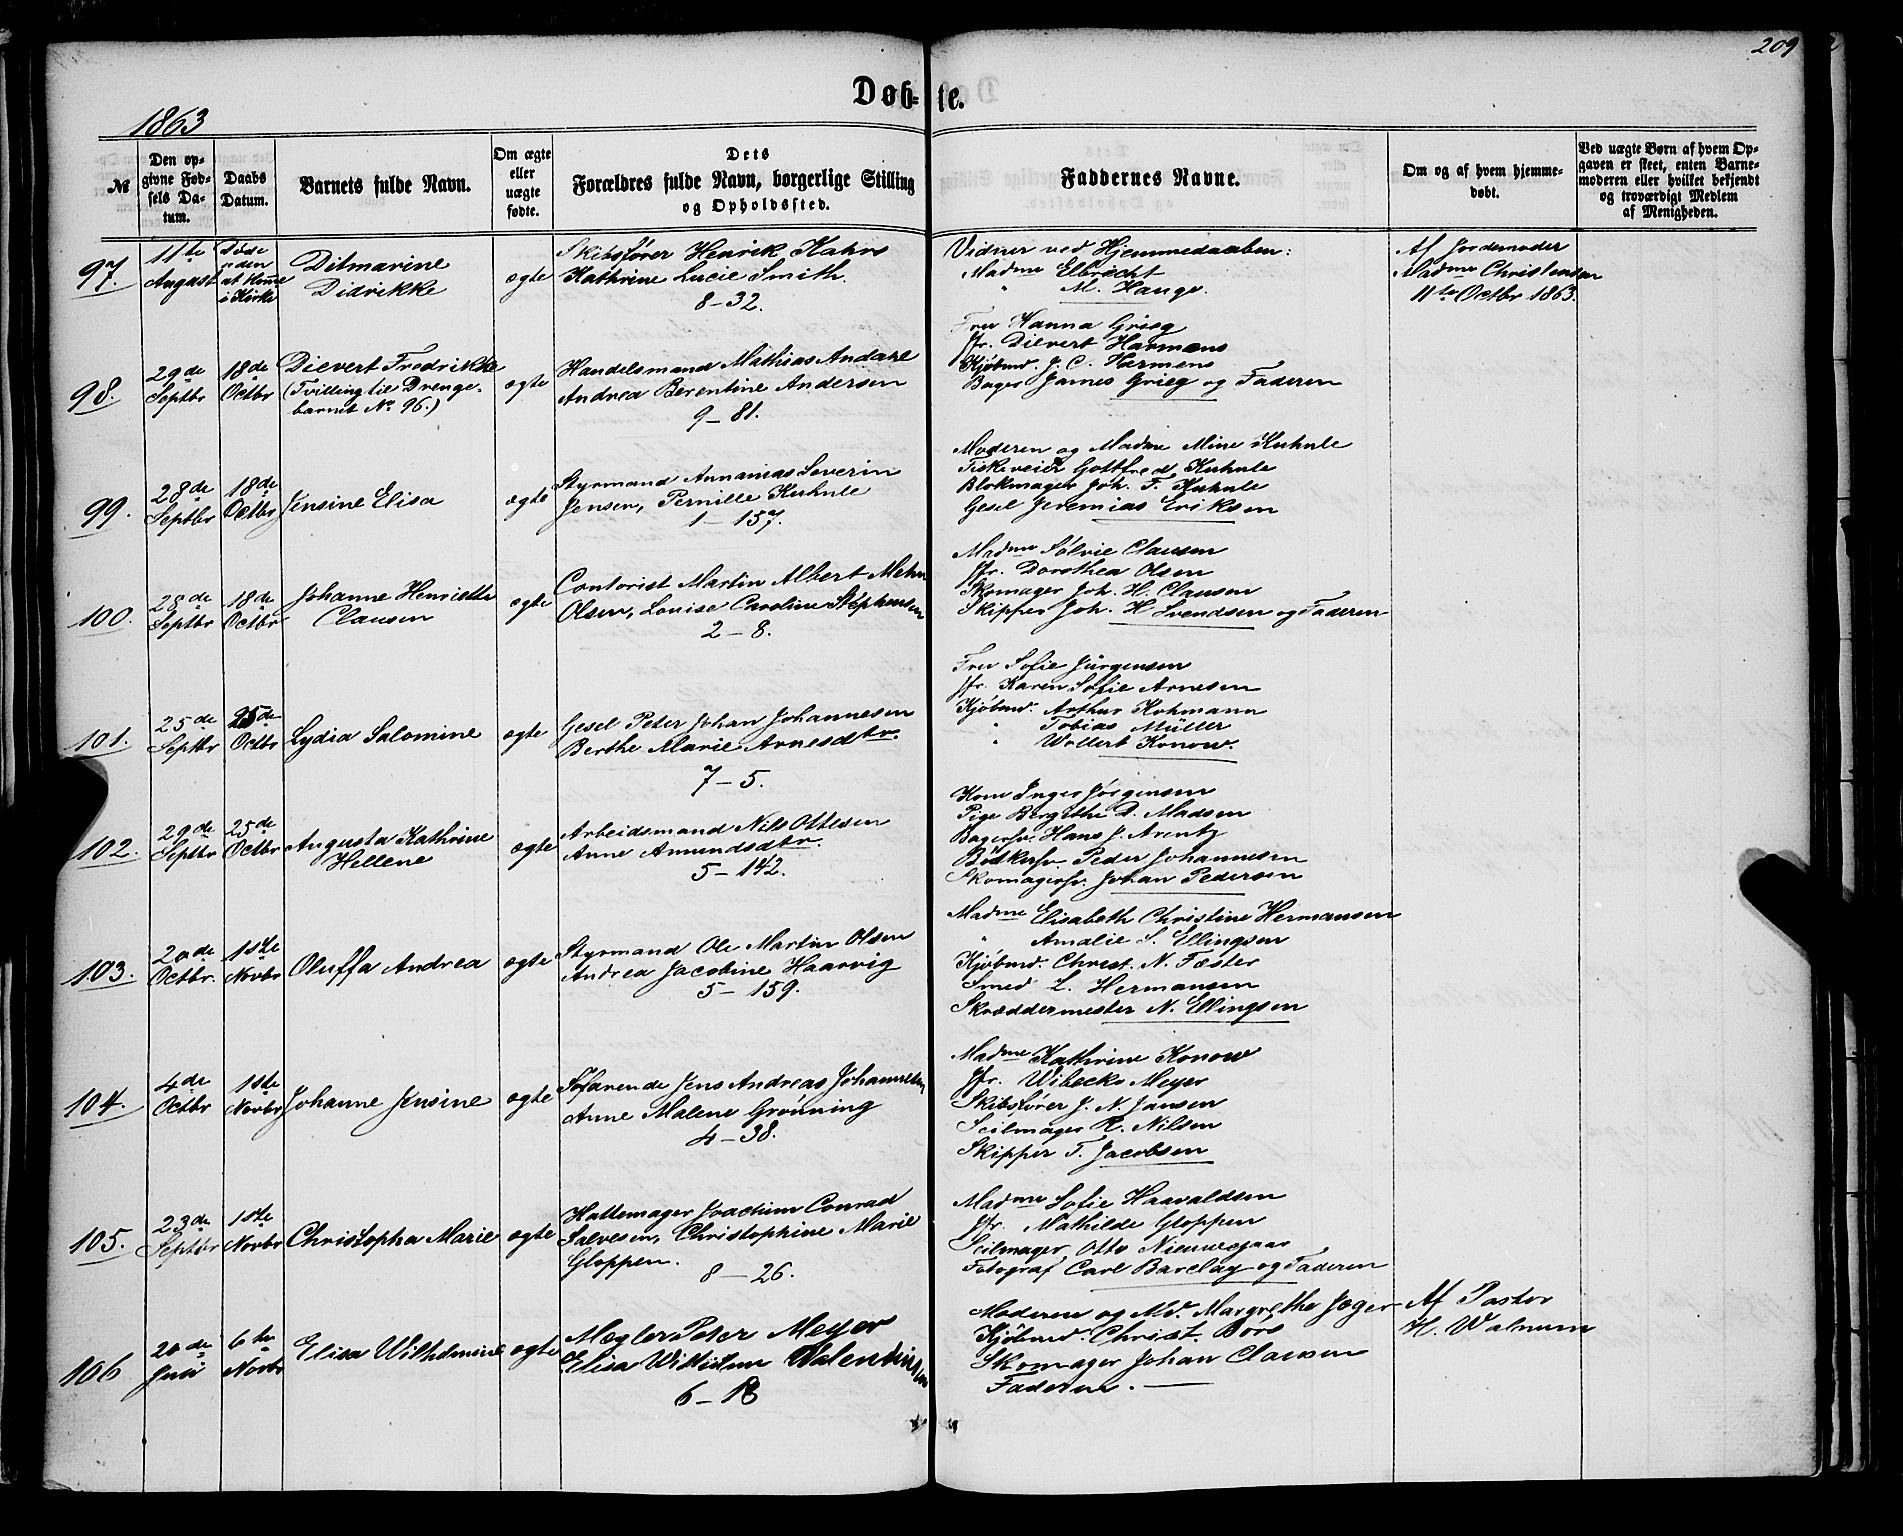 209
Døb-te.
1863
№
Den op-
givne Fød-
sels Da-
tum.
Daabs
Datum.
Barnets fulde Navn.
Om ægte
eller
uægte
fødte.
Dets
Forældres fulde Navn, borgerlige Stilling
og Opholdssted.
Faddernes Navne.
Om og af hvem hjemme-
døbt.
Ved uægte Børn af hvem Op-
gaven er skeet, enten Barne-
moderen eller hvilket bekjendt
og troværdigt Medlem
af Menigheden.
97.
11te
August
Døde
uden
at komme
i Kirke
Ditmarine
Didrikke
ægte
Skibsfører Henrik Kahrs
Kathrine Lucie Smith.
8-32.
Vidner ved Hjemmedaaben:
Madme Elbrecht
" M. Hauge.
Af Jordemoder
Madme Christensen
11te Octbr 1863.
98.
29de
Septbr
18de
Octbr
Dievert Fredrikke
(Tvilling til Drenge-
barnet No 96.)
ægte
Handelsmand Mathias Andahl
Andrea Berentine Andersen
9-81.
Fru Hanna Grieg
Jfr. Dievert Harmens
Kjøbmd. J. C. Harmens
Bager James Grieg og Faderen
99.
28de
Septbr
18de
Octbr
Jensine Elisa
ægte
Styrmand Annanias Severin
Jensen, Pernille Kuhnle
1-157.
Moderen og Madme Mine Kuhnle
Fiskeveier Gottfred Kuhnle
Blokmager Joh. F. Kuhnle
Gesel Jeremias Eriksen
100.
28de
Septbr
18de
Octbr
Johanne Henriette
Clausen
ægte
Contorist Martin Albert Mehn
Olsen, Louise Caroline Stephensen
2-8.
Madme Sølvie Clausen
Jfr. Dorothea Olsen
Skomager Joh. H. Clausen
Skipper Joh. H Svendsen og Faderen
101.
25de
Septbr
25de
Octbr
Lydia Salomine
ægte
Gesel Peter Johan Johannesen
Berthe Marie Arnesdtr.
7-5.
Fru Sofie Jürgensen
Jfr. Karen Sofie Arnesen
Kjøbmd. Arthur Kohmann
" Tobias Müller
" Wollert Konow.
102.
29de
Septbr
25de
Octbr
Augusta Kathrine
Hellene
ægte
Arbeidsmand Nils Ottesen
Anne Amundsdtr.
5-142.
Kone Inger Jørgensen
Pige Bergithe D. Madsen
Bagersv. Hans J. Arentz
Bødkersv Peder Johannesen
Skomagersv. Johan Pedersen
103.
20de
Octbr.
1ste
Novbr
Oluffa Andrea
ægte
Styrmand Ole Martin Olsen
Andrea Jacobine Haarvig
5-159.
Madme Elisabeth Christine Hermansen
" Amalie S. Ellingsen
Kjøbmd. Christ. N. Fæster
Smed L. Hermansen
Skræddermester N. Ellingsen
104.
4de
Octbr
1ste
Novbr
Johanne Jensine
ægte
Søfarende Jens Andreas Johannesen
Anne Malene Grønning
4-38.
Madme Kathrine Konow
Jfr. Wibecke Meyer
Skibsfører J. N. Jansen
Seilmager R. Nilsen
Skipper T. Jacobsen
105.
23de
Septbr
1ste
Novbr
Christopha Marie
ægte
Hattemager Joachim Conrad
Salvesen, Christophine Marie
Gloppen.
8-26.
Madme Sofie Haavaldsen
Jfr. Mathilde Gloppen
Seilmager Otto Nieuwejaar
Fotograf Carl Barclay og Faderen
106
20de
Juni
6te
Novbr
Elisa Wilhelmine
ægte
Mægler Peter Meyer
Elisa Valentinsen
6-18
Moderen og Md. Margrethe Jæger
Kjøbmd. Christ. Børs
Skomager Johan Clausen
Faderen.
Af Pastor
H. Walnum